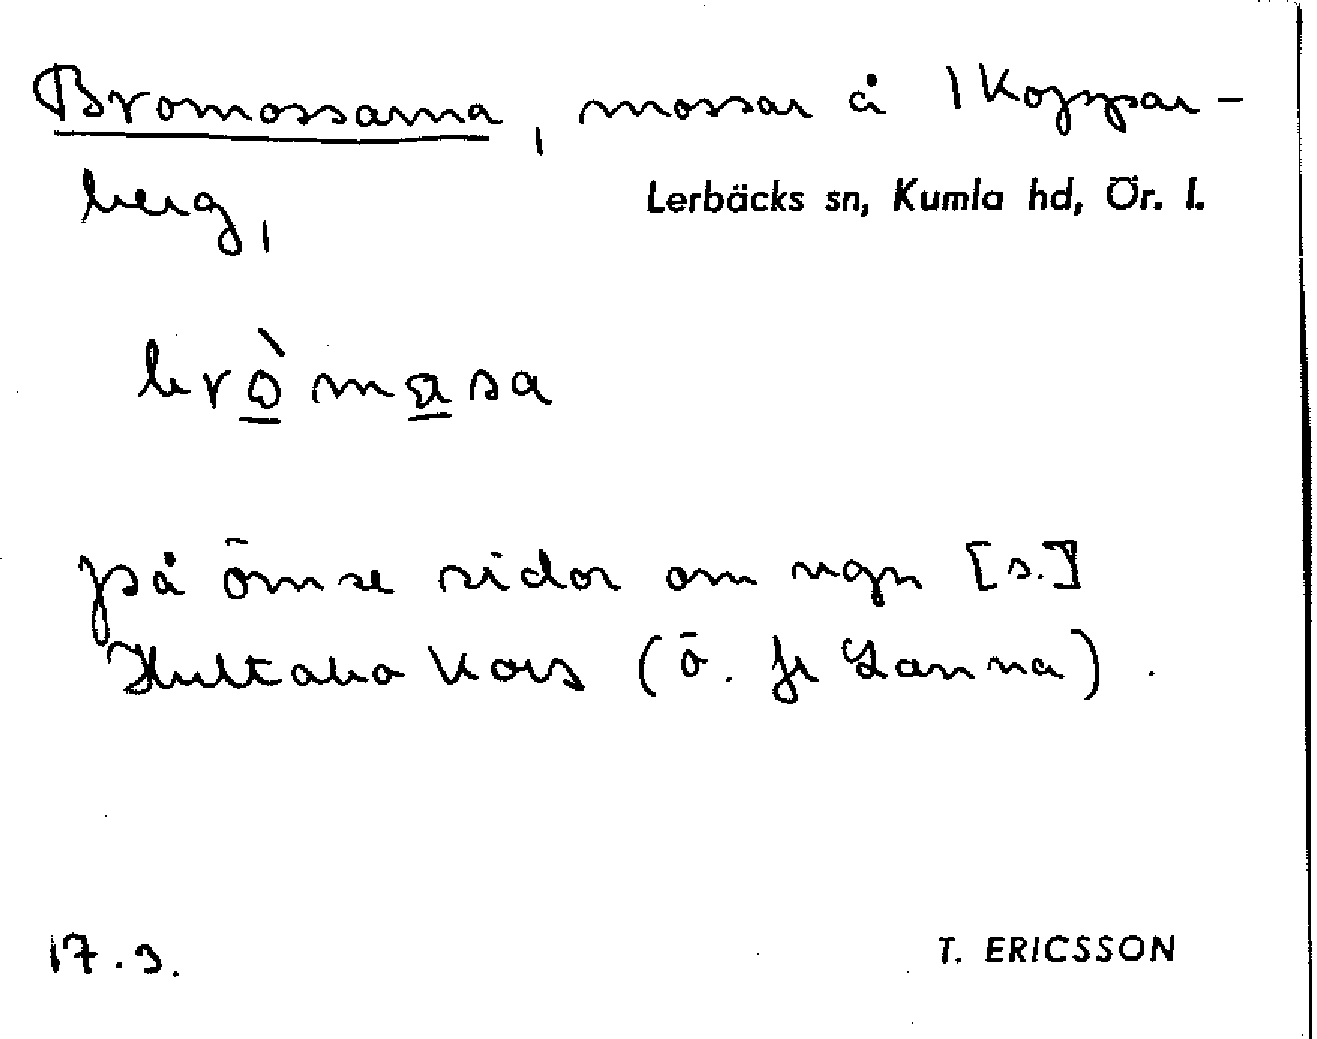 Bromossarna, mossar å 1 Koppar-
berg,
Lerbäcks sn, Kumla hd, Ör. l.
brò̲ma̲sa
på ömse sidor om vägen [s.]
Hultabo Kors (ö. fr Lanna).
17.3.
T. ERICSSON